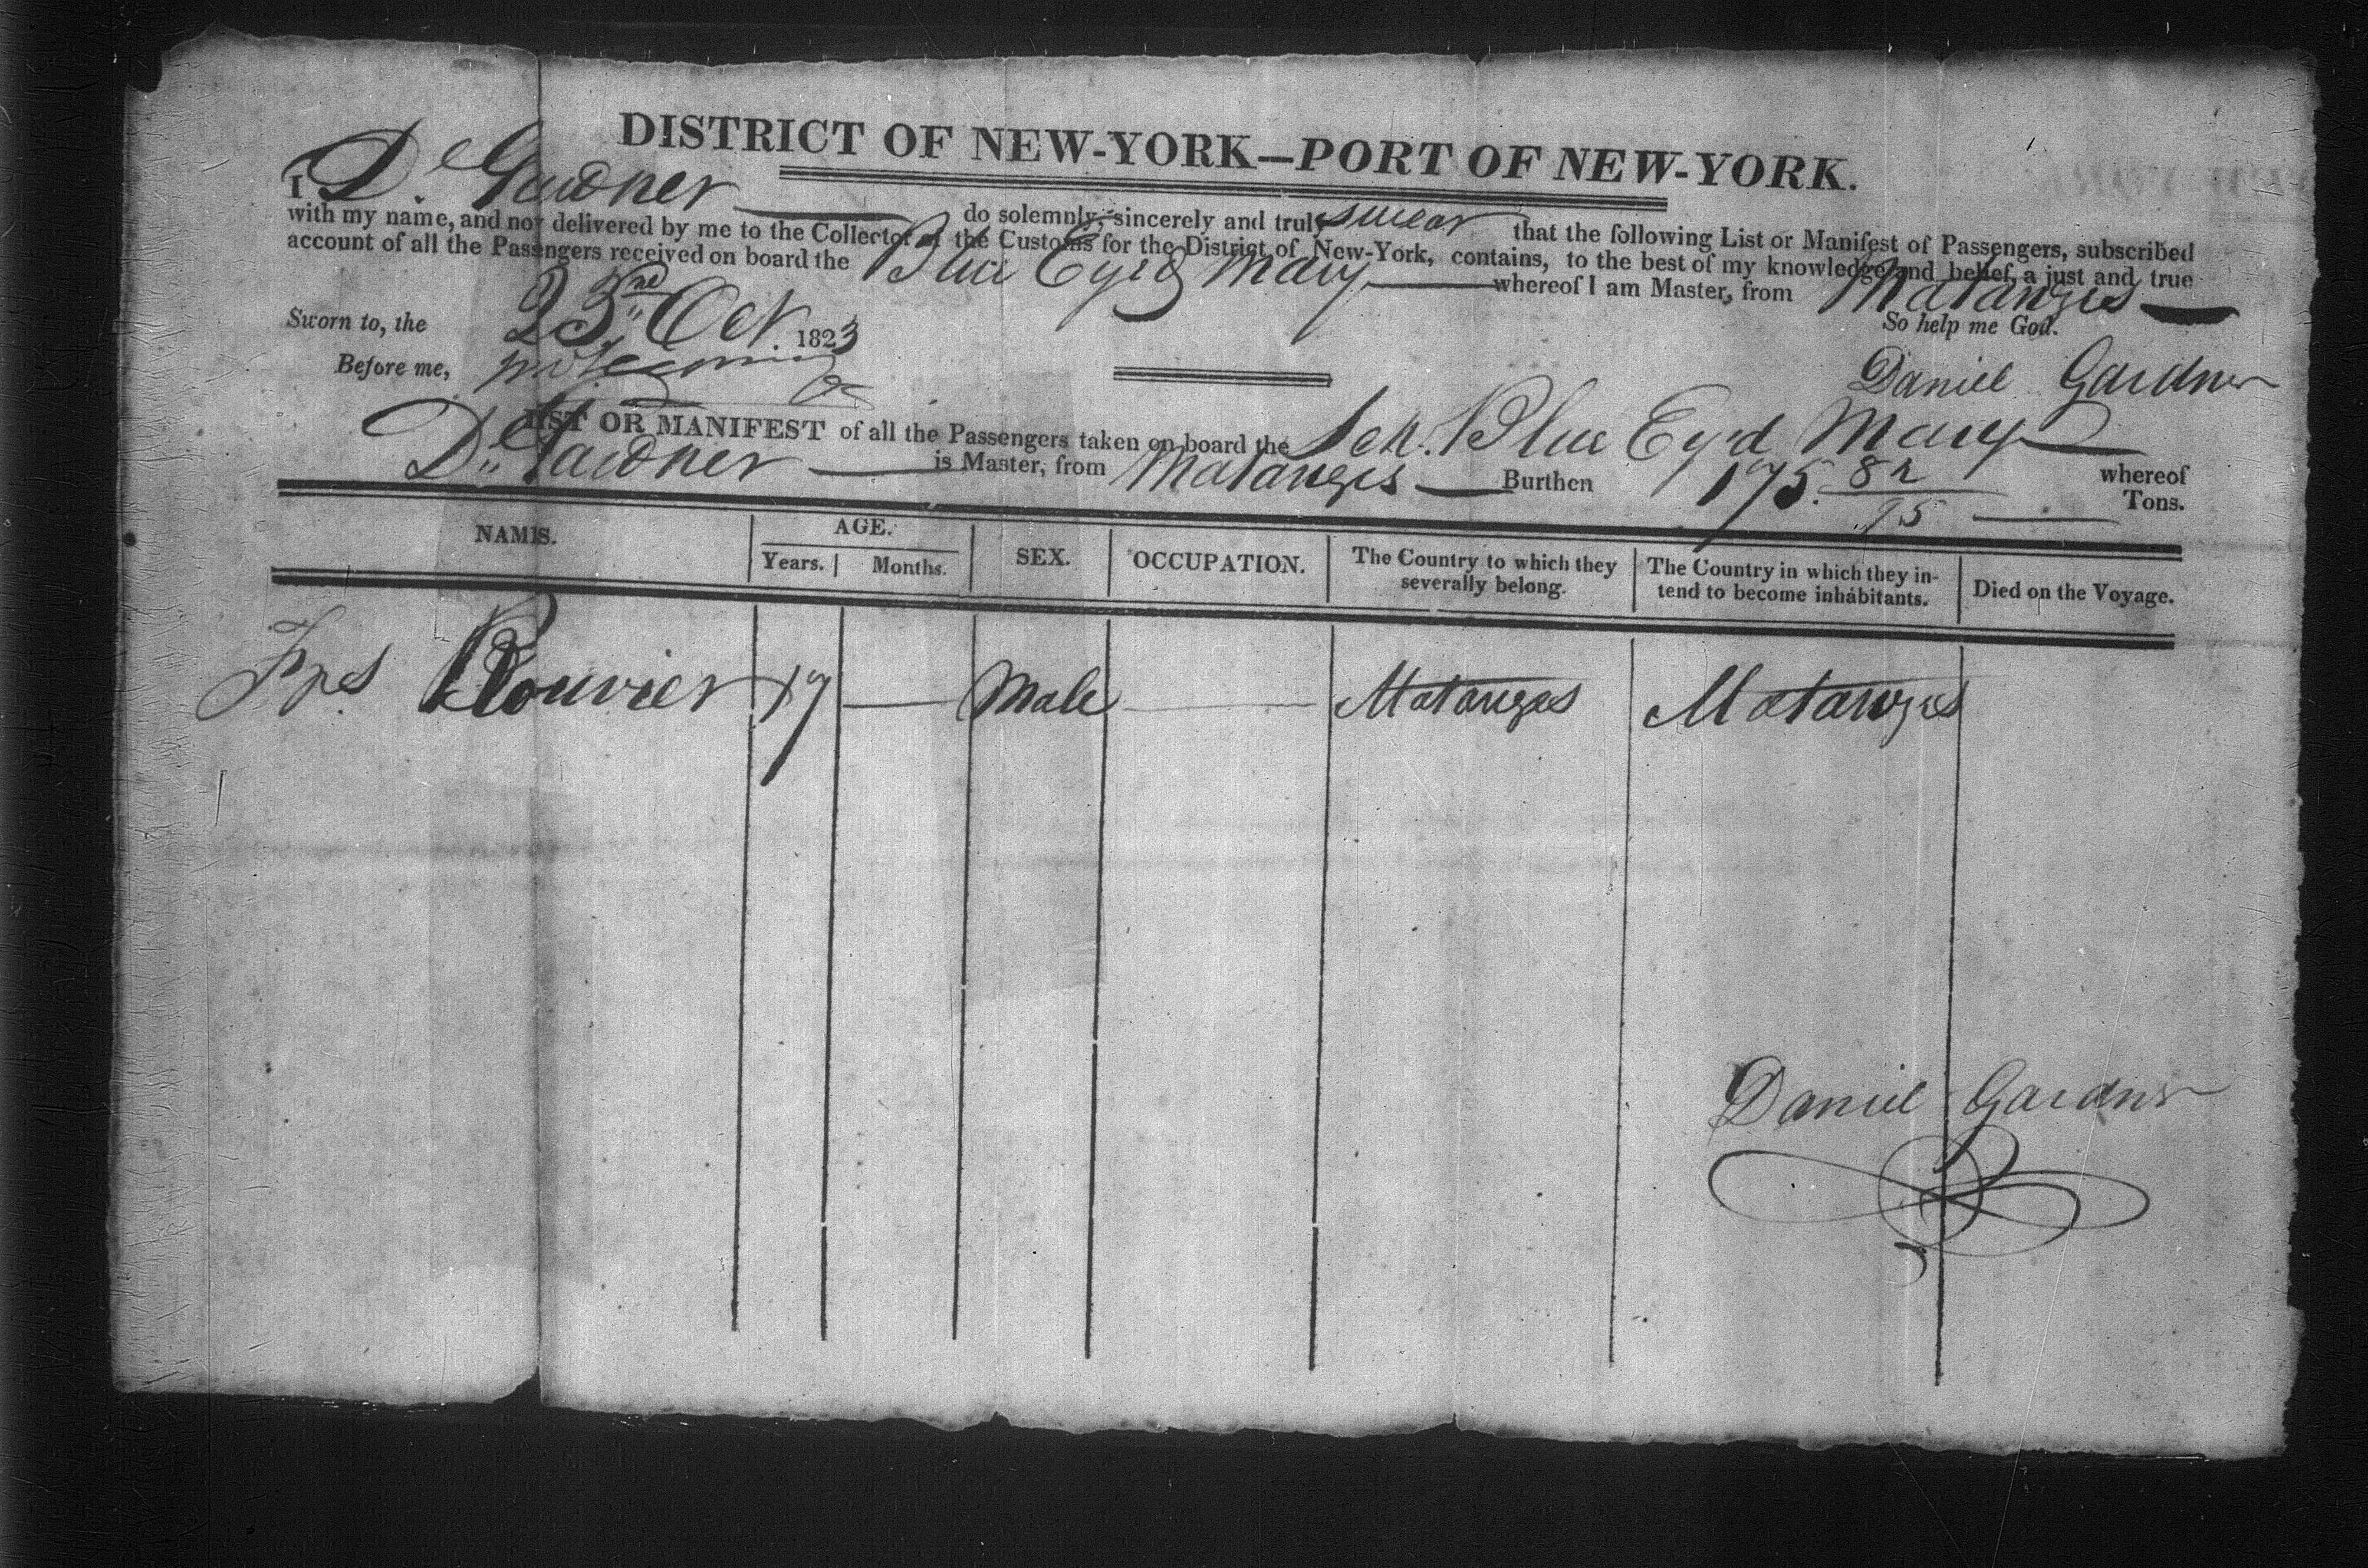 DISTRICT OF NEW-YORK—PORT OF NEW-YORK.
I D. Gardner do solemnly, sincerely and truly swear that the following List or Manifest of Passengers, subscribed
with my name, and now delivered by me to the Collector of the Customs for the District of New-York, contains, to the best of my knowledge and belief, a just and true
account of all the Passengers received on board the Blue Eyed Mary whereof I am Master, from Matanzas
So help me God.
Sworn to, the 23rd Oct. 1823
Before me,
Daniel Gardner
LIST OR MANIFEST of all the Passengers taken on board the Sch. Blue Ey'd Mary whereof
D. Gardner is Master, from Matanzas Burthen 175. 82/95 Tons.
NAMES. AGE. SEX. OCCUPATION. The Country to which they severally belong. The Country in which they in-tend to become inhabitants. Died on the Voyage.
Years. Months.
Bouvier 17 Male Matanzas Matanzas
Daniel Gardner